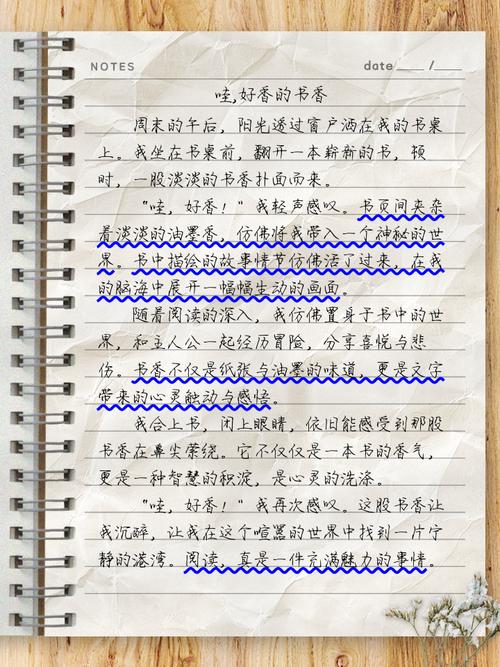 NOTES
date____/____
哇,好香的书香
周末的午后，阳光透过窗户洒在我的书桌
上。我坐在书桌前，翻开一本崭新的书，顿
时，一股淡淡的书香扑面而来。
“哇，好香！”我轻声感叹。书页间夹杂
着淡淡的油墨香，仿佛将我带入一个神秘的世
界。书中描绘的故事情节仿佛活了过来，在我
的脑海中展开一幅幅生动的画面。
随着阅读的深入，我仿佛置身于书中的世
界，和主人公一起经历冒险，分享喜悦与悲
伤。书香不仅是纸张与油墨的味道，更是文字
带来的心灵触动与感悟。
我合上书，闭上眼睛，依旧能感受到那股
书香在鼻尖萦绕。它不仅仅是一本书的香气，
更是一种智慧的积淀，是心灵的洗涤。
“哇，好香！”我再次感叹。这股书香让
我沉醉，让我在这个喧嚣的世界中找到一片宁
静的港湾。阅读，真是一件充满魅力的事情。